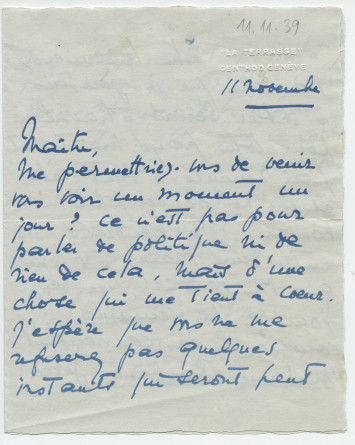 11.11.39
"LA TERRASSE"
GENTHOD GENÈVE
11 novembre
Maître,
Me permettriez-vous de venir
vous voir un moment un
jour ? Ce n'est pas pour
parler de politique ni de
rien de cela, mais d'une
chose qui me tient à coeur.
J'espère que vous ne me
refuserez pas quelques
instants qui seront peut